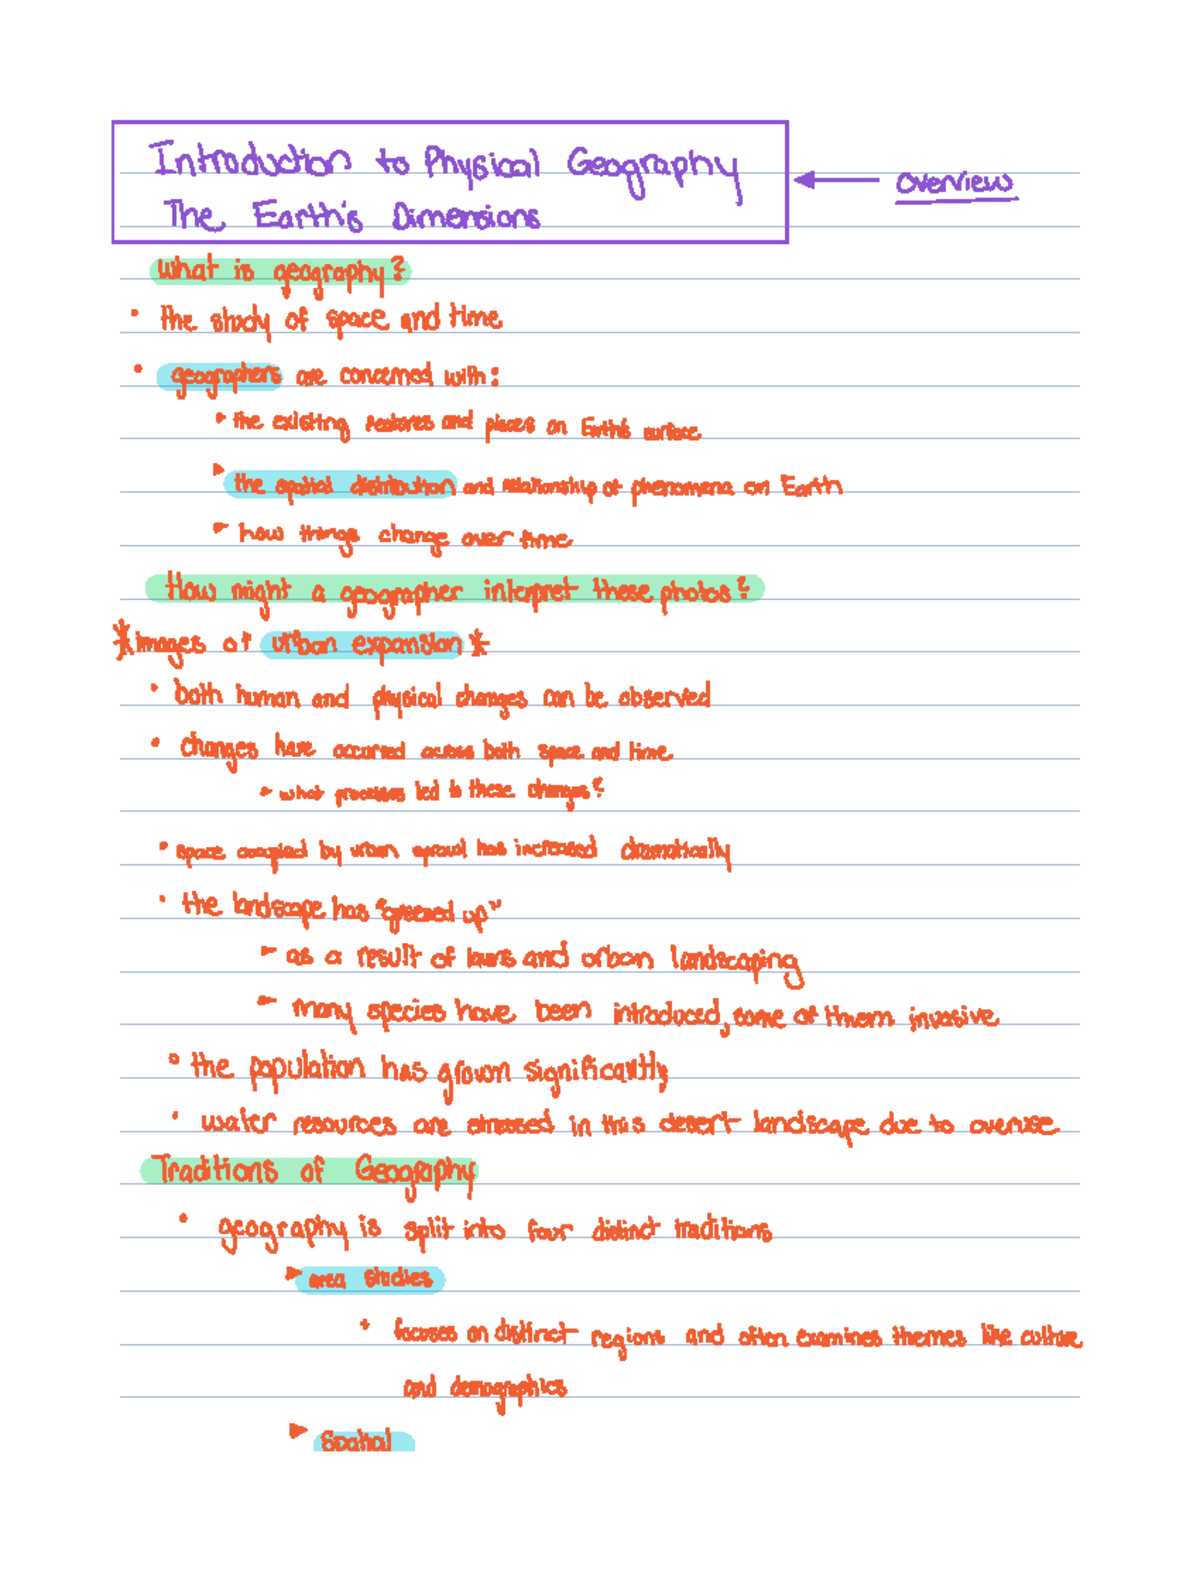 Introduction to Physical Geography
The Earth's Dimensions
overview
what is geography?
• the study of space and time
• geographers are concerned with:
‣ the existing features and places on Earth's surface
‣ the spatial distribution and relationship of phenomena on Earth
‣ how things change over time
How might a geographer interpret these photos?
*images of urban expansion*
• both human and physical changes can be observed
• changes have occurred across both space and time
‣ what processes led to these changes?
• space occupied by urban sprawl has increased dramatically
• the landscape has "greened up"
‣ as a result of lawns and urban landscaping
‣ many species have been introduced, some of them invasive
• the population has grown significantly
• water resources are stressed in this desert landscape due to overuse
Traditions of Geography
• geography is split into four distinct traditions
‣ area studies
• focuses on distinct regions and often examines themes like culture
and demographics
‣ Spatial